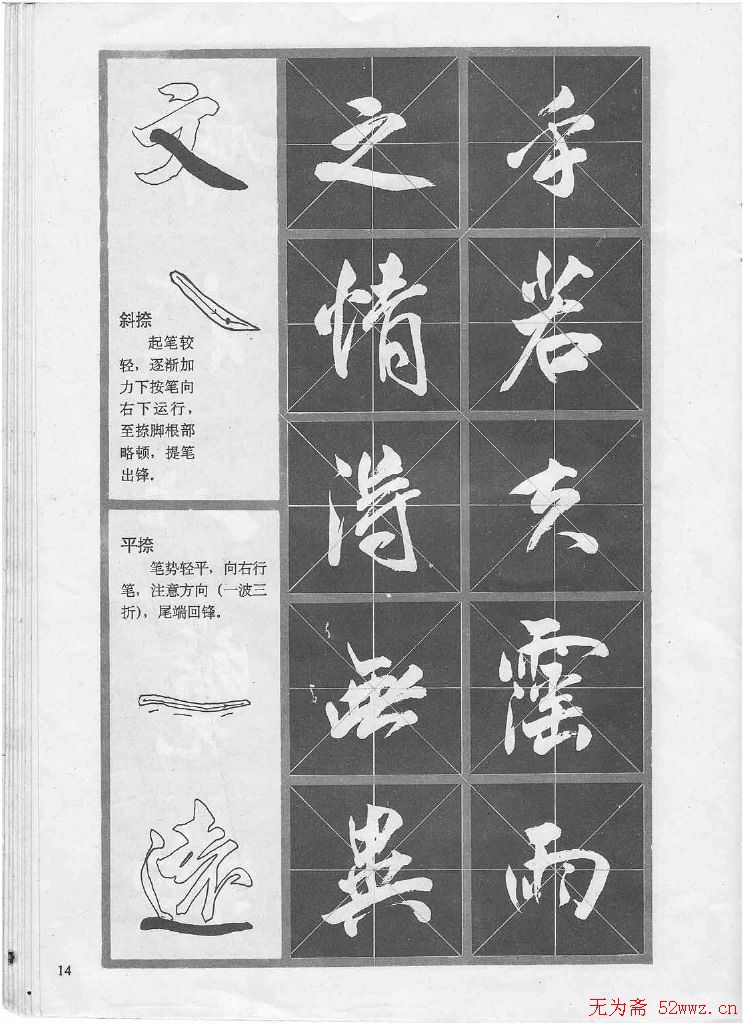 文
斜捺
起笔较
轻，逐渐加
力下按笔向
右下运行，
至捺脚根部
略顿，提笔
出锋。
平捺
笔势轻平，向右行
笔，注意方向（一波三
折），尾端回锋。
遠
之情得無異
乎若夫霪雨
14
无为斋 52wwz.cn